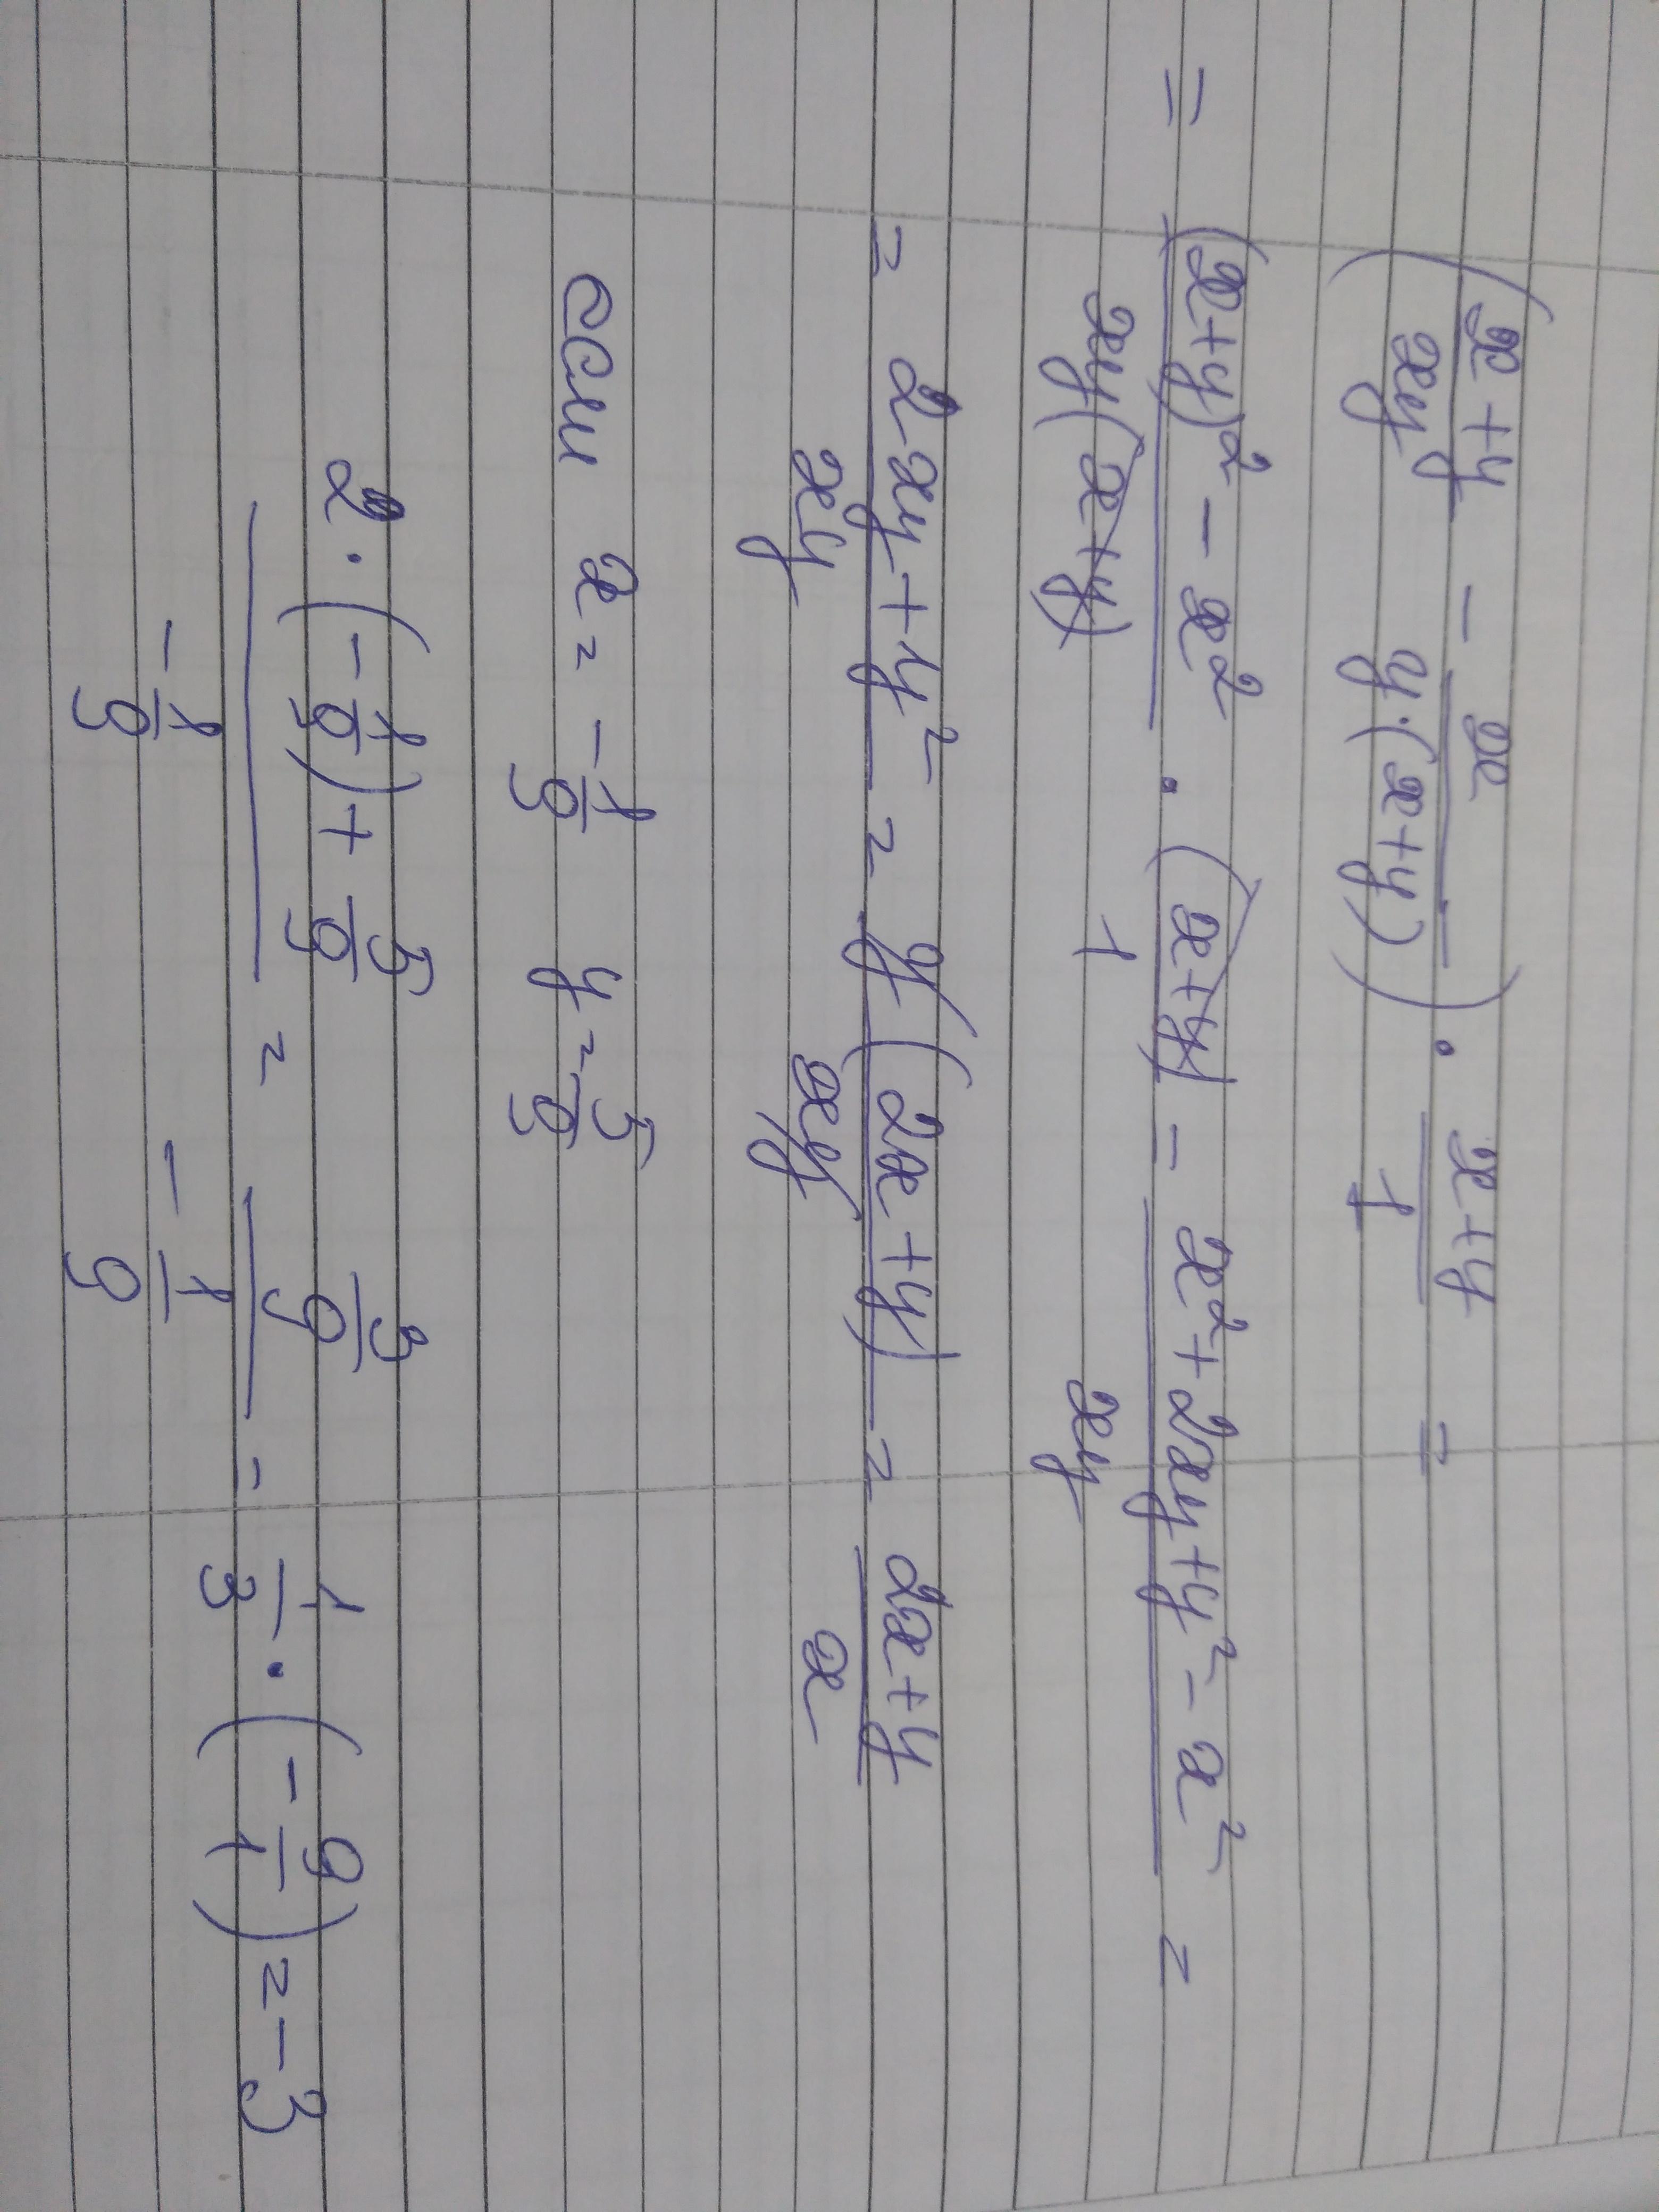 ((x+y)/(xy) - x/(y·(x+y))) · (x+y)/1 =
= ((x+y)² - x²)/(xy(x+y)) · (x+y)/1 = (x²+2xy+y²-x²)/(xy) =
= (2xy+y²)/(xy) = y(2x+y)/(xy) = (2x+y)/x
если x = -1/9 y = 5/9
(2·(-1/9)+5/9)/(-1/9) = (3/9)/(-1/9) = 1/3 · (-9/1) = -3